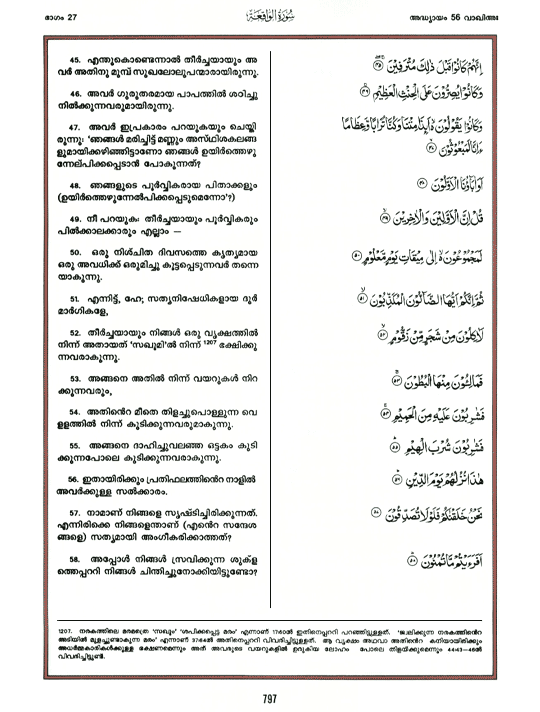 ഭാഗം 27
سُورَةُ الْوَاقِعَةِ
അദ്ധ്യായം 56 വാഖിഅഃ
45. എന്തുകൊണ്ടെന്നാൽ തീർച്ചയായും അ
വർ അതിനു മുമ്പ് സുഖലോലുപന്മാരായിരുന്നു.
إِنَّهُمْ كَانُوا قَبْلَ ذَٰلِكَ مُتْرَفِينَ ﴿٤٥﴾
46. അവർ ഗുരുതരമായ പാപത്തിൽ ശഠിച്ചു
നിൽക്കുന്നവരുമായിരുന്നു.
وَكَانُوا يُصِرُّونَ عَلَى الْحِنثِ الْعَظِيمِ ﴿٤٦﴾
47. അവർ ഇപ്രകാരം പറയുകയും ചെയ്തി
രുന്നു: 'ഞങ്ങൾ മരിച്ചിട്ട് മണ്ണും അസ്ഥിശകലങ്ങ
ളുമായിക്കഴിഞ്ഞിട്ടാണോ ഞങ്ങൾ ഉയിർത്തെഴു
ന്നേല്പിക്കപ്പെടാൻ പോകുന്നത്?
وَكَانُوا يَقُولُونَ أَئِذَا مِتْنَا وَكُنَّا تُرَابًا وَعِظَامًا
أَإِنَّا لَمَبْعُوثُونَ ﴿٤٧﴾
48. ഞങ്ങളുടെ പൂർവ്വികരായ പിതാക്കളും
(ഉയിർത്തെഴുന്നേൽപിക്കപ്പെടുമെന്നോ'?)
أَوَآبَاؤُنَا الْأَوَّلُونَ ﴿٤٨﴾
49. നീ പറയുക: തീർച്ചയായും പൂർവ്വികരും
പിൽക്കാലക്കാരും എല്ലാം —
قُلْ إِنَّ الْأَوَّلِينَ وَالْآخِرِينَ ﴿٤٩﴾
50. ഒരു നിശ്ചിത ദിവസത്തെ കൃത്യമായ
ഒരു അവധിക്ക് ഒരുമിച്ചു കൂട്ടപ്പെടുന്നവർ തന്നെ
യാകുന്നു.
لَمَجْمُوعُونَ إِلَىٰ مِيقَاتِ يَوْمٍ مَّعْلُومٍ ﴿٥٠﴾
51. എന്നിട്ട്, ഹേ; സത്യനിഷേധികളായ ദുർ
മാർഗികളേ,
ثُمَّ إِنَّكُمْ أَيُّهَا الضَّالُّونَ الْمُكَذِّبُونَ ﴿٥١﴾
52. തീർച്ചയായും നിങ്ങൾ ഒരു വൃക്ഷത്തിൽ
നിന്ന് അതായത് 'സഖൂമി'ൽ നിന്ന് 1207 ഭക്ഷിക്കു
ന്നവരാകുന്നു.
لَآكِلُونَ مِن شَجَرٍ مِّن زَقُّومٍ ﴿٥٢﴾
53. അങ്ങനെ അതിൽ നിന്ന് വയറുകൾ നിറ
ക്കുന്നവരും,
فَمَالِئُونَ مِنْهَا الْبُطُونَ ﴿٥٣﴾
54. അതിൻെറ മീതെ തിളച്ചുപൊള്ളുന്ന വെ
ള്ളത്തിൽ നിന്ന് കുടിക്കുന്നവരുമാകുന്നു.
فَشَارِبُونَ عَلَيْهِ مِنَ الْحَمِيمِ ﴿٥٤﴾
55. അങ്ങനെ ദാഹിച്ചുവലഞ്ഞ ഒട്ടകം കുടി
ക്കുന്നപോലെ കുടിക്കുന്നവരാകുന്നു.
فَشَارِبُونَ شُرْبَ الْهِيمِ ﴿٥٥﴾
56. ഇതായിരിക്കും പ്രതിഫലത്തിൻെറ നാളിൽ
അവർക്കുള്ള സൽക്കാരം.
هَٰذَا نُزُلُهُمْ يَوْمَ الدِّينِ ﴿٥٦﴾
57. നാമാണ് നിങ്ങളെ സൃഷ്ടിച്ചിരിക്കുന്നത്.
എന്നിരിക്കെ നിങ്ങളെന്താണ് (എൻെറ സന്ദേശ
ങ്ങളെ) സത്യമായി അംഗീകരിക്കാത്തത്?
نَحْنُ خَلَقْنَاكُمْ فَلَوْلَا تُصَدِّقُونَ ﴿٥٧﴾
58. അപ്പോൾ നിങ്ങൾ സ്രവിക്കുന്ന ശുക്ള
ത്തെപ്പററി നിങ്ങൾ ചിന്തിച്ചുനോക്കിയിട്ടുണ്ടോ?
أَفَرَأَيْتُم مَّا تُمْنُونَ ﴿٥٨﴾
1207. നരകത്തിലെ മരമത്രെ 'സഖൂം' 'ശപിക്കപ്പെട്ട മരം' എന്നാണ് 17:60ൽ ഇതിനെപ്പററി പറഞ്ഞിട്ടുള്ളത്. 'ജ്വലിക്കുന്ന നരകത്തിൻെറ
അടിയിൽ മുളച്ചുണ്ടാകുന്ന മരം' എന്നാണ് 37:64ൽ അതിനെപ്പററി വിവരിച്ചിട്ടുള്ളത്. ആ വൃക്ഷം അഥവാ അതിൻെറ കനിയായിരിക്കും
അധർമ്മകാരികൾക്കുള്ള ഭക്ഷണമെന്നും അത് അവരുടെ വയറുകളിൽ ഉരുകിയ ലോഹം പോലെ തിളയ്ക്കുമെന്നും 44:43–46ൽ
വിവരിച്ചിട്ടുണ്ട്.
797